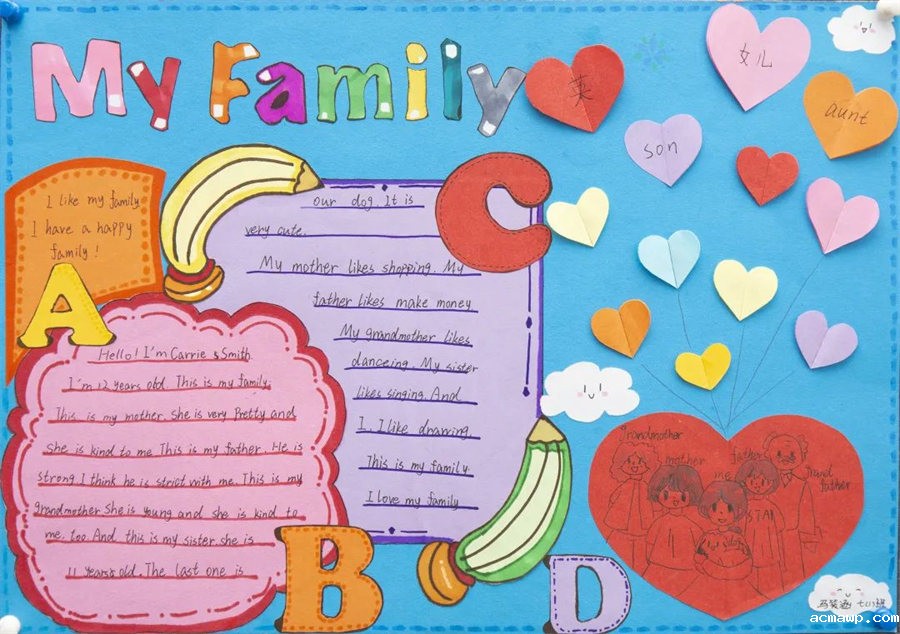 My Family
英
女儿
aunt
son
I like my family
I have a happy
family!
A
C
our dog. It is
very cute.
My mother likes shopping. My
father likes make money
My grandmother likes
danceing. My sister
likes singing. And
I. I like drawing.
This is my family
I love my family
Hello! I'm Carrie Smith
I'm 12 years old. This is my family.
This is my mother. She is very Pretty and
she is kind to me This is my father. He is
strong I think he is strict with me. This is my
grandmother She is young and she is kind to
me. too. And this is my sister. she is
11 years old. The last one is
B
D
grandmother
mother
father
me
grand
father
acmawp.com